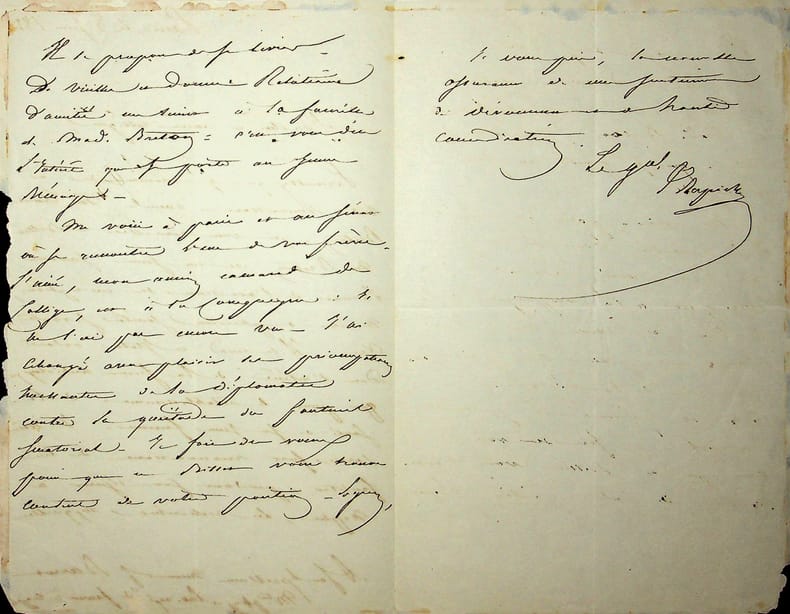 Il se propose de se
De vieilles et bonnes Relations
D'amitié à la famille
de Mad. Breton - vous dire
L'intérêt que je porte au jeune
Ménage -
Me voici à paris et au Sénat
où je rencontre de vos frères
L'ainé, mon ancien camarade de
Collège, est à la Campagne : Je
ne l'ai pas encore vu - J'ai
Changé avec plaisir les préoccupations
de la diplomatie
contre la quiétude du fauteuil
Senatorial - Je fais des vœux
pour que ce vous trouve
content de votre position - Agréez,
Je vous prie, la nouvelle
assurance de mes sentimens
de Dévouement et de haute
considération
Le gal
Aupick